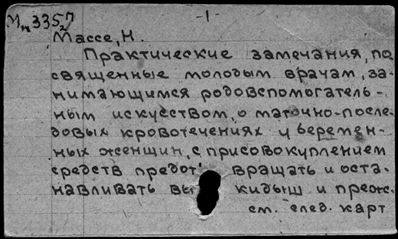 -1-
М 3357
Массе, Н.
Практические замечания, по
священные молодым врачам, за-
нимающимся родовспомогатель-
ным искусством, о маточно-после-
довых кровотечениях у беремен-
ных женщин, с присовокуплением
средств предот вращать и оста-
навливать вы кидыш и преж.
см. след. карт